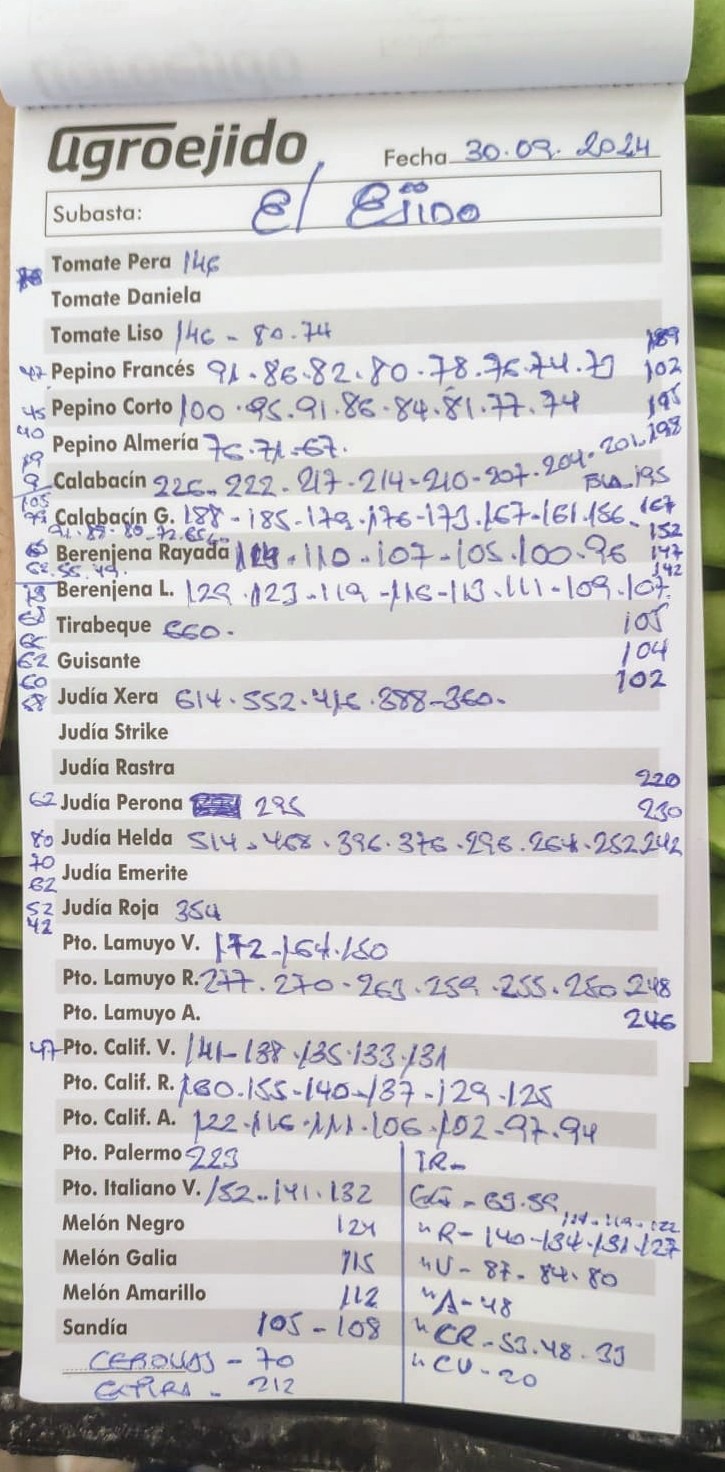 agroejido
Fecha 30.09.2024
Subasta: El Ejido
Tomate Pera 146
Tomate Daniela
Tomate Liso 146 - 80.74
189
47 Pepino Francés 91.86.82.80.78.76.74.71 102
45 Pepino Corto 100.95.91.86.84.81.77.74 195
40 Pepino Almería 76.71.67.
Calabacín 226. 222. 217.214.210.207.204.201.198
BLA 195
105
Calabacín G. 188 - 185.179.176.173.167.161.156. 167
91.89.80.72.65
152
Berenjena Rayada 114.110.107.105.100.96 147
62.56.49.
142
Berenjena L. 129.123.119.116.113.111.109.107.
Tirabeque 660. 105
Guisante 104
62
60 102
58 Judía Xera 614.552.416.388-360.
Judía Strike
Judía Rastra
220
62 Judía Perona 295 230
80 Judía Helda 514.468.396.376.296.264.252.242
70
Judía Emerite
62
52 Judía Roja 354
42
Pto. Lamuyo V. 172.164.150
Pto. Lamuyo R. 277.270.263.259.255.250.248
Pto. Lamuyo A. 246
47 Pto. Calif. V. 141-138.135.133.131
Pto. Calif. R. 160.155-140-137-129.125
Pto. Calif. A. 122.116.111.106.102.97.94
Pto. Palermo 223 IR-
Pto. Italiano V. 152.141.132 GG - 69.59
124.119.122
Melón Negro 124 "R- 140-134.131.127
Melón Galia 115 "V- 87.84.80
Melón Amarillo 112 "A-48
Sandía 105-108 "CR-53.48.39
CEBOLLAS - 70 "CV-20
EXTRA - 212